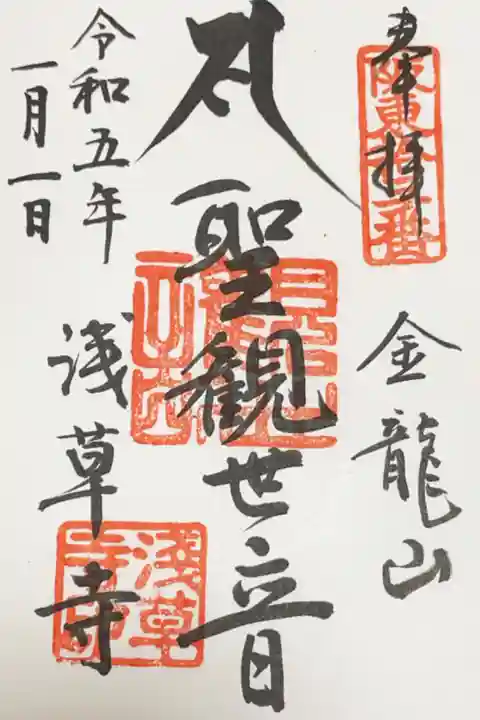 奉拝
坂東拾三番
金龍山
聖観世音
浅草寺
浅草寺
令和五年
一月一日